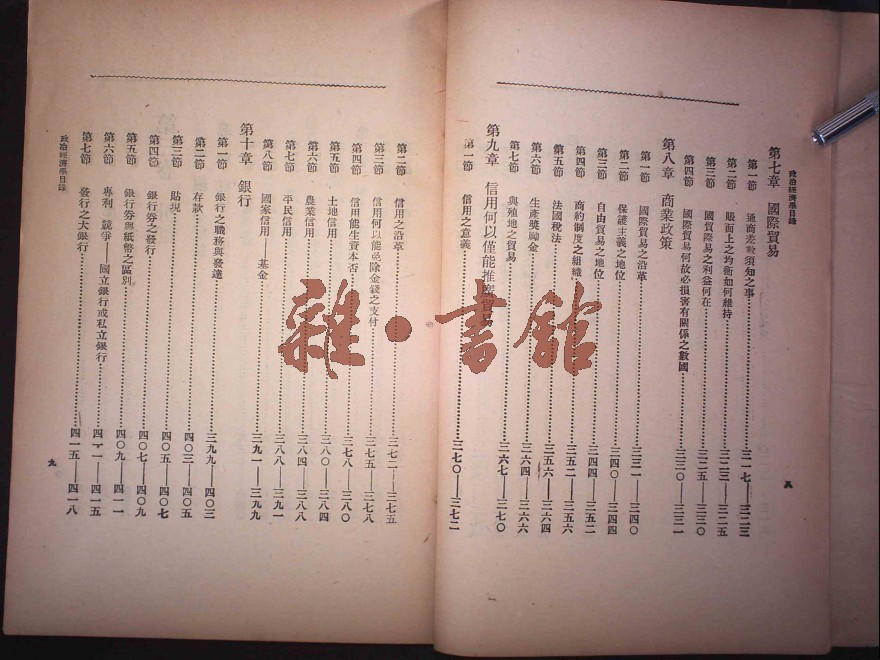 政治經濟學目錄
第七章 國際貿易
第一節 通商差數須知之事 三一七——三二三
第二節 賬面上之均衡如何維持 三二三——三二五
第三節 國貿際易之利益何在 三二五——三三〇
第四節 國際貿易何故必損害有關係之數國 三三〇——三三一
第八章 商業政策
第一節 國際貿易之沿革 三三一——三四〇
第二節 保護主義之地位 三四〇——三四四
第三節 自由貿易之地位 三四四——三五二
第四節 商約制度之組織 三五二——三五六
第五節 法國稅法 三五六——三六四
第六節 生產獎勵金 三六四——三六六
第七節 與殖地之貿易 三六七——三七〇
第九章 信用何以僅能推廣貿易
第一節 信用之意義 三七〇——三七二
八
第二節 信用之沿革 三七二——三七五
第三節 信用何以能免除金錢之支付 三七五——三七八
第四節 信用能生資本否 三七八——三八〇
第五節 土地信用 三八〇——三八四
第六節 農業信用 三八四——三八八
第七節 平民信用 三八八——三九一
第八節 國家信用——基金 三九一——三九九
第十章 銀行
第一節 銀行之職務與發達 三九九——四〇三
第二節 存款 四〇三——四〇五
第三節 貼現 四〇五——四〇七
第四節 銀行券之發行 四〇七——四〇九
第五節 銀行券與紙幣之區別 四〇九——四一一
第六節 專利 競爭——國立銀行或私立銀行 四一一——四一五
第七節 發行之大銀行 四一五——四一八
政治經濟學目錄
九
雜·書館